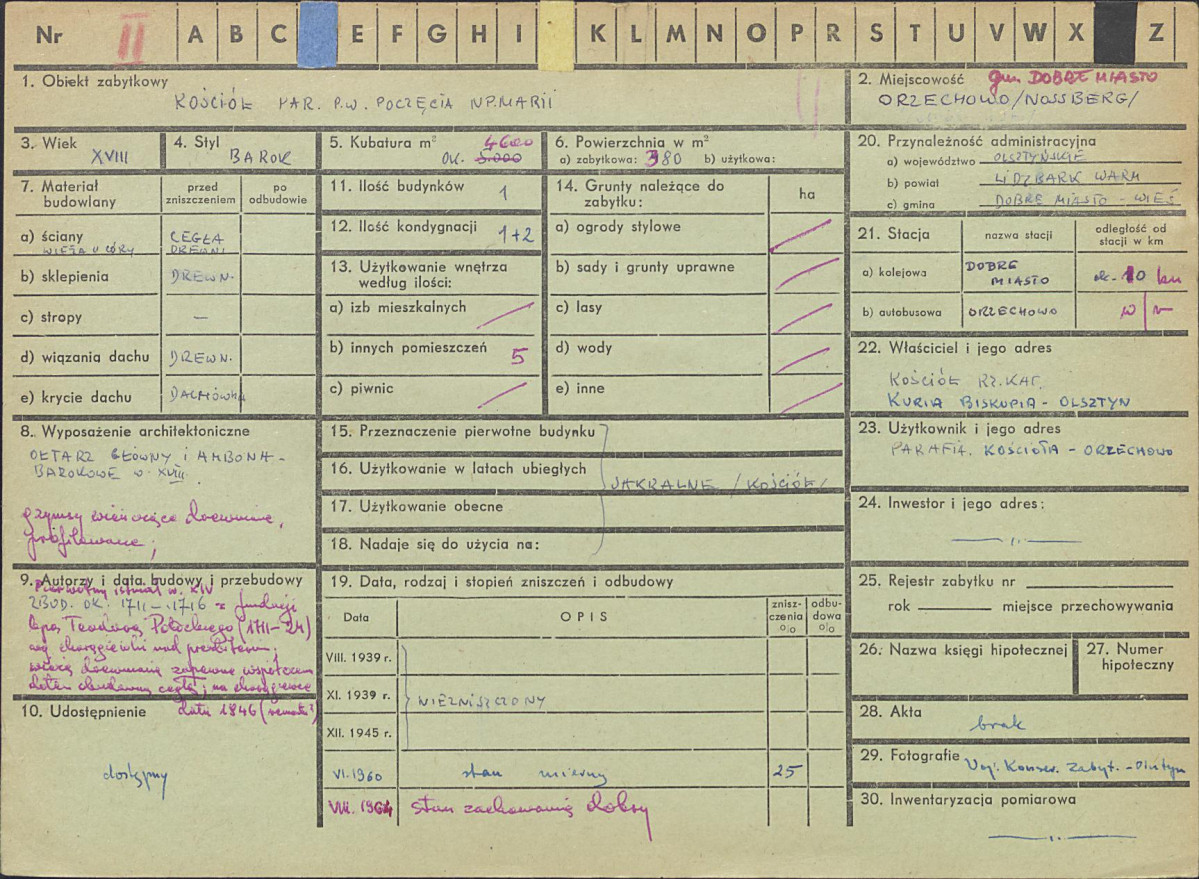 Nr II A B C E F G H I K L M N O P R S T U V W X Z
1. Obiekt zabytkowy
KOŚCIÓŁ PAR. P.W. POCZĘCIA NP.MARII
2. Miejscowość gm. DOBRE MIASTO
ORZECHOWO/NOSSBERG/
3. Wiek
XVIII
4. Styl
BAROK
5. Kubatura m³ 4600
OK. 3.000
6. Powierzchnia w m²
a) zabytkowa: 380 b) użytkowa:
20. Przynależność administracyjna
a) województwo OLSZTYŃSKIE
b) powiat LIDZBARK WARM
c) gmina DOBRE MIASTO - WIEŚ
7. Materiał budowlany
przed zniszczeniem
po odbudowie
a) ściany CEGŁA
WIEŻA U GÓRY DREWNI
b) sklepienia DREWN.
c) stropy —
d) wiązania dachu DREWN.
e) krycie dachu DACHÓWKA
11. Ilość budynków 1
12. Ilość kondygnacji 1+2
13. Użytkowanie wnętrza
według ilości:
a) izb mieszkalnych
b) innych pomieszczeń 5
c) piwnic
14. Grunty należące do
zabytku:
ha
a) ogrody stylowe
b) sady i grunty uprawne
c) lasy
d) wody
e) inne
21. Stacja
nazwa stacji
odległość od
stacji w km
a) kolejowa DOBRE
MIASTO ok. 10 km
b) autobusowa ORZECHOWO
22. Właściciel i jego adres
KOŚCIÓŁ RZ.KAT.
KURIA BISKUPIA - OLSZTYN
8. Wyposażenie architektoniczne
OŁTARZ GŁÓWNY i AMBONA -
BAROKOWE w. XVIII.
gzymsy wieńczące drewniane,
profilowane;
15. Przeznaczenie pierwotne budynku
16. Użytkowanie w latach ubiegłych
SAKRALNE /KOŚCIÓŁ/
17. Użytkowanie obecne
18. Nadaje się do użycia na:
23. Użytkownik i jego adres
PARAFIA KOŚCIOŁA - ORZECHOWO
24. Inwestor i jego adres:
9. Autorzy i data budowy i przebudowy
Pierwotny istniał w. XIV
ZBUD. OK. 1711-1716 z fundacji
bpa Teodora Potockiego (1711-24)
wg chorągiewki nad prezbiterium;
wieża drewniana zapewne
data 1846 (remont?)
10. Udostępnienie
dostępny
19. Data, rodzaj i stopień zniszczeń i odbudowy
Data
OPIS
znisz-
czenia
%
odbu-
dowa
%
VIII. 1939 r.
XI. 1939 r. NIEZNISZCZONY
XII. 1945 r.
VI.1960 stan mierny 25
VIII. 1964 stan zachowania dobry
25. Rejestr zabytku nr
rok miejsce przechowywania
26. Nazwa księgi hipotecznej
27. Numer
hipoteczny
28. Akta
brak
29. Fotografie
Woj. Konser. Zabyt. - Olsztyn
30. Inwentaryzacja pomiarowa